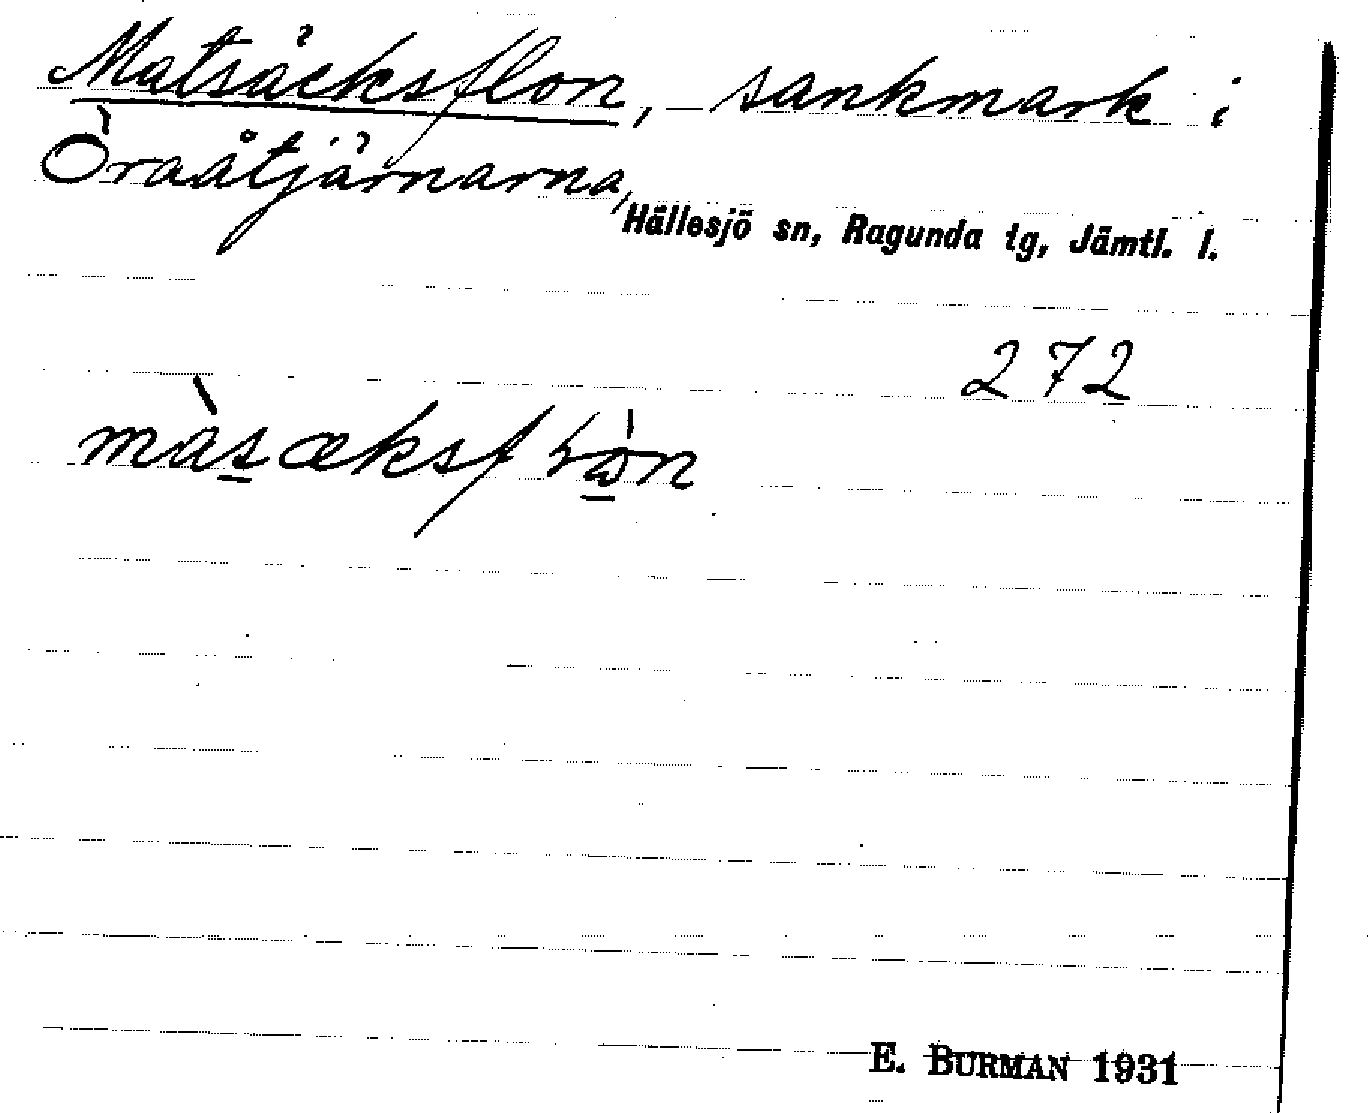 Matsäcksflon, – sankmark i
Öraåtjärnarna,
Hällesjö sn, Ragunda tg, Jämtl. l.
272
E. BURMAN 1931